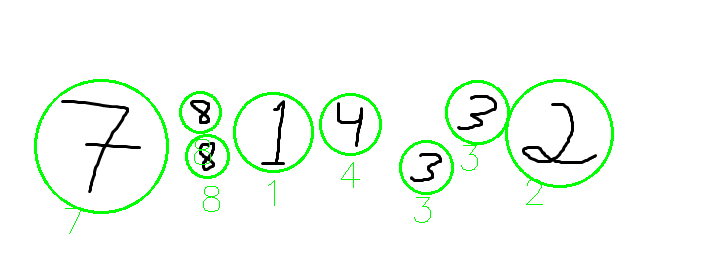 7 8 8 1 4 3 3 2
7 8 1 4 3 3 2